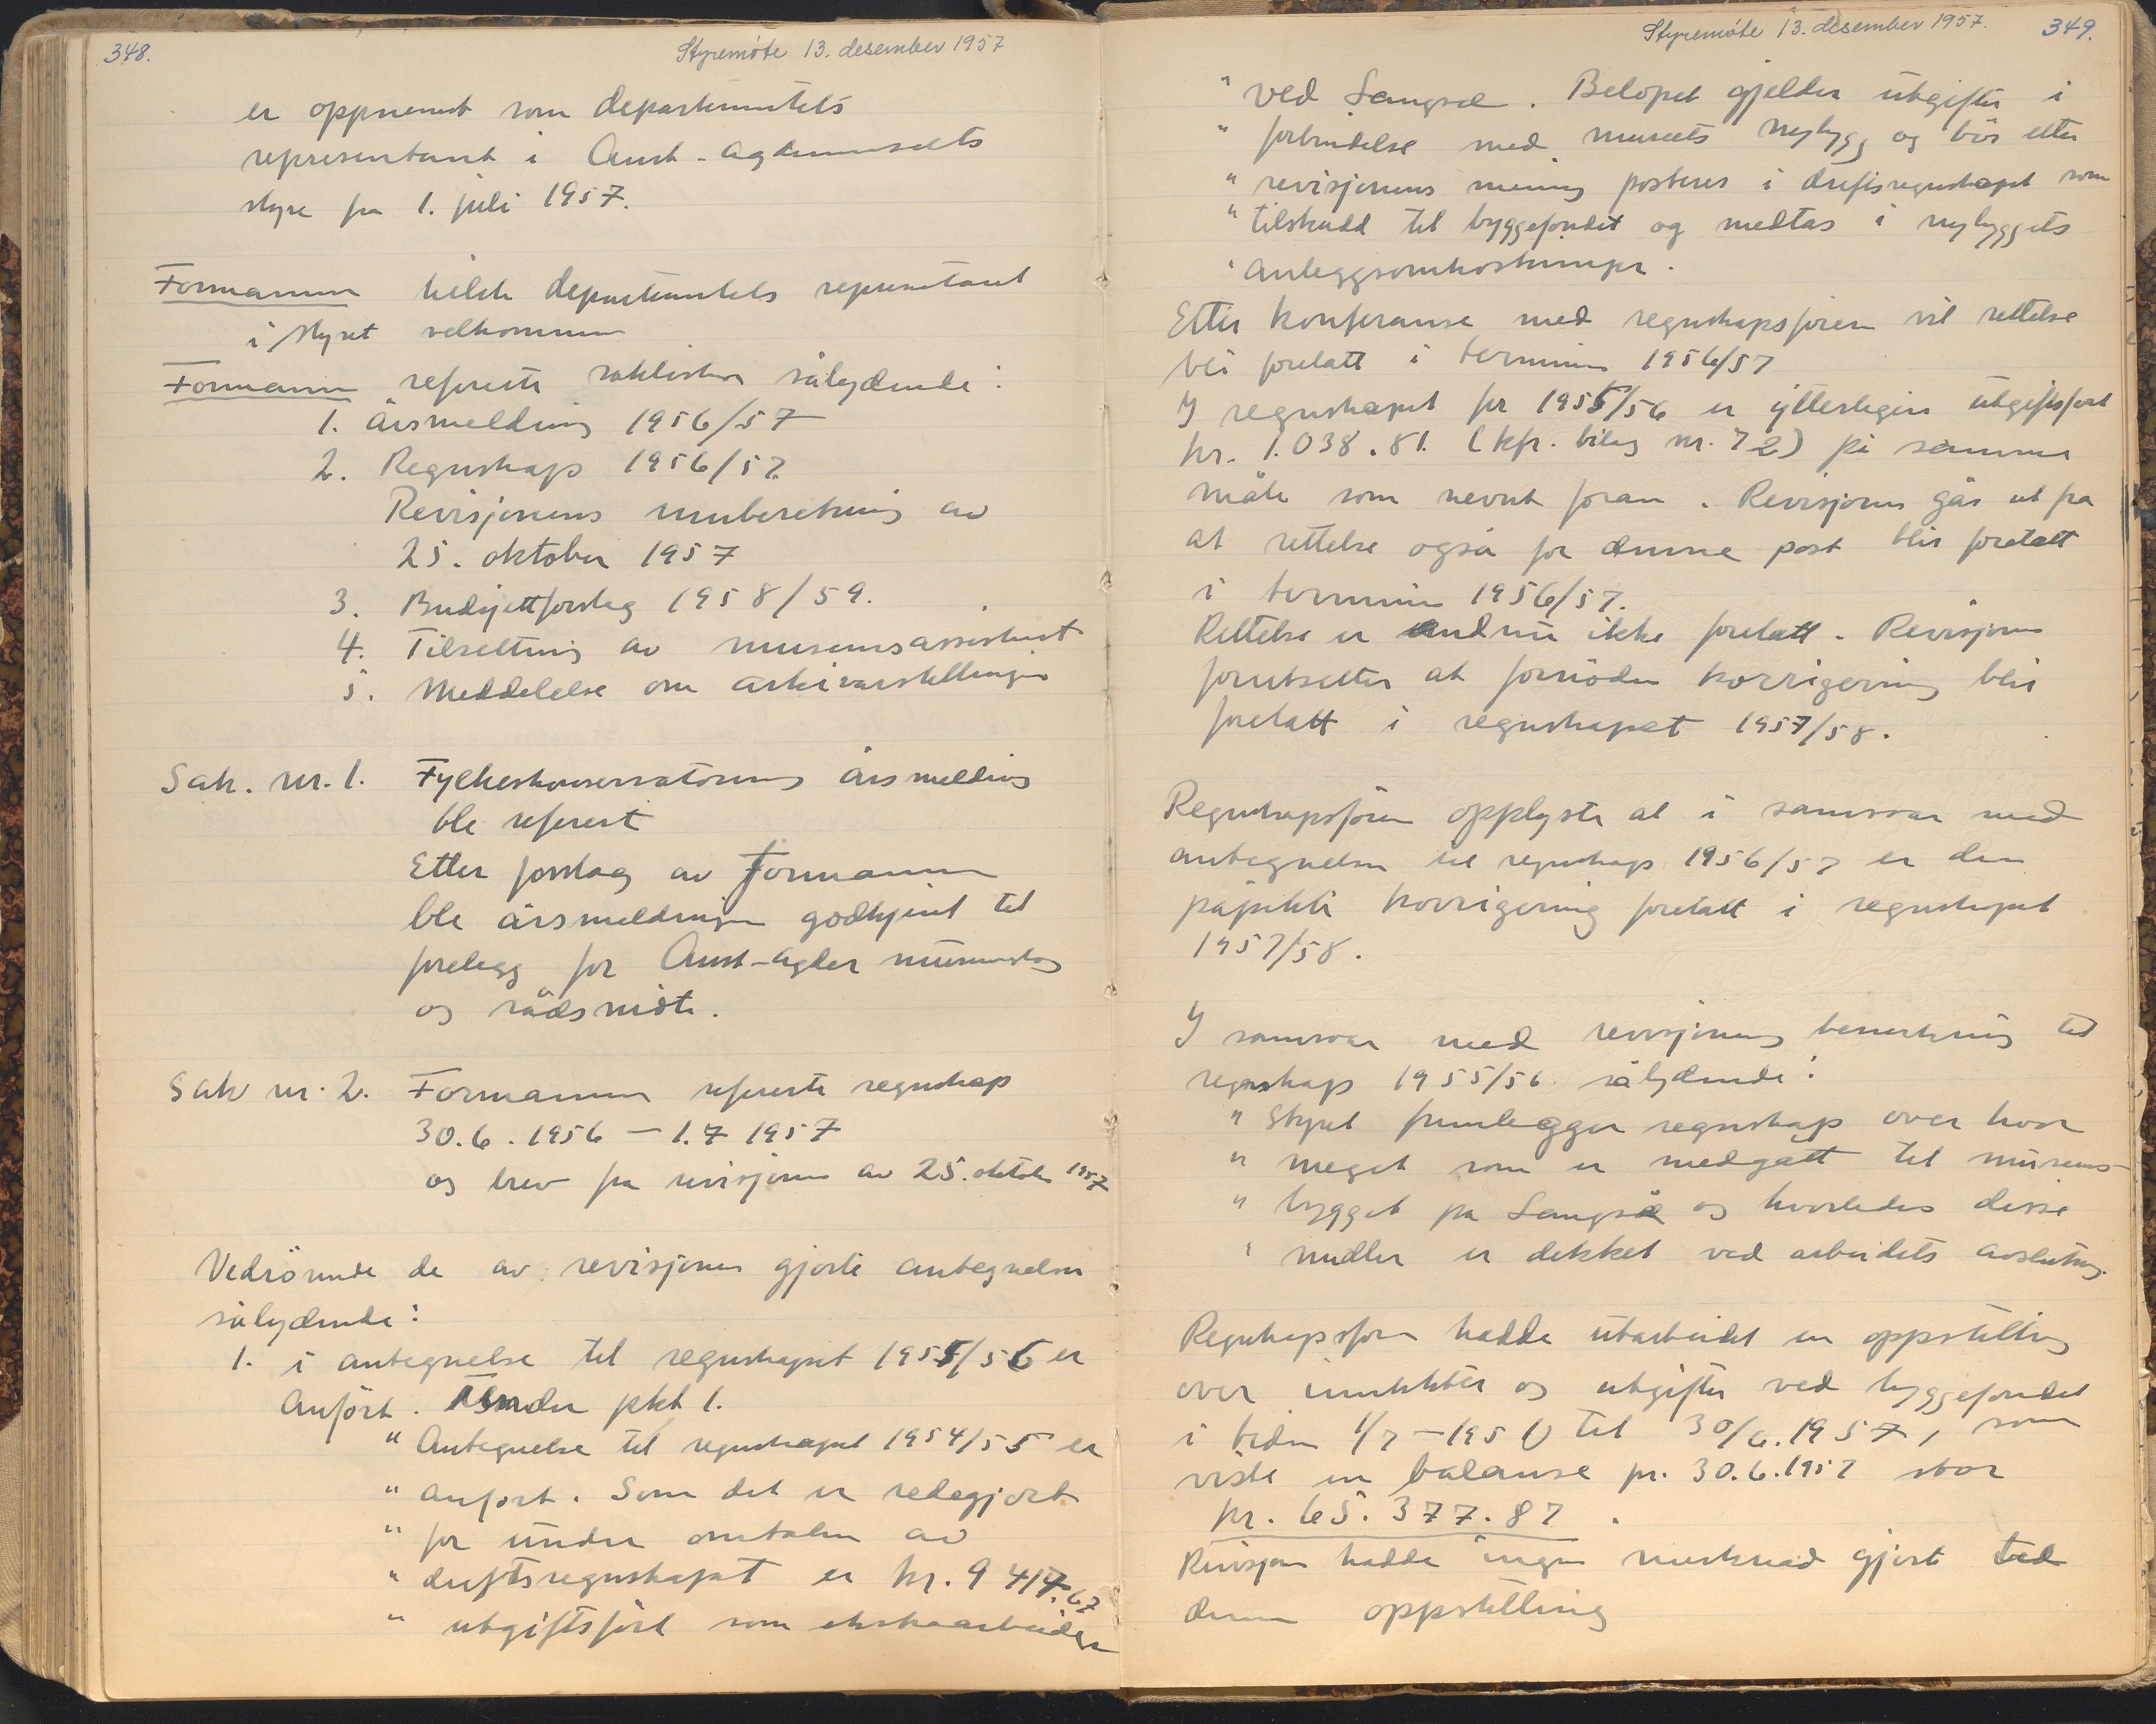 348.
Styremöte 13. desember 1957
er oppnevnt som departementets
representant i Aust-Agdermuseets
styre fra 1. juli 1957.
Formannen hilste departementets representant
i styret velkommen
Formannen refererte saklisten sålydende:
1. årsmelding 1956/57
2. Regnskap 1956/57
Revisjonens innberetning av
25. oktober 1957
3. Budsjettforslag 1958/59.
4. Tilsetting av museumsassistent
5. Meddelelse om arkivarstillingen
Sak. nr. 1. Fylkeskonservatorens årsmelding
ble referert
Etter forslag av Formannen
ble årsmeldingen godkjent til
forelegg for Aust-Agder museumslag
og rådsmöte.
Sak nr. 2. Formannen refererte regnskap
30.6.1956 – 1.7 1957
og brev fra revisjonen av 25. oktober 1957
Vedrörende de av revisjonen gjorte antegnelser
sålydende:
1. i antegnelse til regnskapet 1955/56 er
anfört. Under pkt 1.
" Antegnelse til regnskapet 1954/55 er
" anfört. Som det er redegjort
" for under omtalen av
" driftsregnskapet er kr. 9 417.67
" utgiftsfört som ekstraarbeider
Styremöte 13. desember 1957.
349.
" ved Langsæ. Belöpet gjelder utgifter i
" forbindelse med museets nybygg og bör etter
" revisjonens mening posteres i driftsregnskapet som
" tilskudd til byggefondet og medtas i nybyggets
" anleggsomkostninger.
Etter konferanse med regnskapsföreren vil rettelse
bli foretatt i terminen 1956/57
I regnskapet for 1955/56 er ytterligere utgiftsfört
kr. 1.038.81. (kfr. bilag nr. 72) på samme
måte som nevnt foran. Revisjonen går ut fra
at rettelse også for denne post blir foretatt
i terminen 1956/57.
Rettelse er endnu ikke foretatt. Revisjonen
forutsetter at fornöden korrigering blir
foretatt i regnskapet 1957/58.
Regnskapsföreren opplyste at i samsvar med
antegnelsen til regnskap 1956/57 er den
påpekte korrigering foretatt i regnskapet
1957/58.
I samsvar med revisjonens bemerkning til
regnskap 1955/56 sålydende:
" Styret fremlegger regnskap over hvor
" meget som er medgått til museums-
" bygget på Langsæ og hvorledes disse
" midler er dekket ved arbeidets avslutning.
Regnskapsföreren hadde utarbeidet en oppstilling
over inntekter og utgifter ved byggefondet
i tiden 1/7 – 1950 til 30/6.1957, som
viste en balanse pr. 30.6.1957 stor
kr. 65.377.87.
Revisjonen hadde ingen merknad gjort ved
denne oppstilling